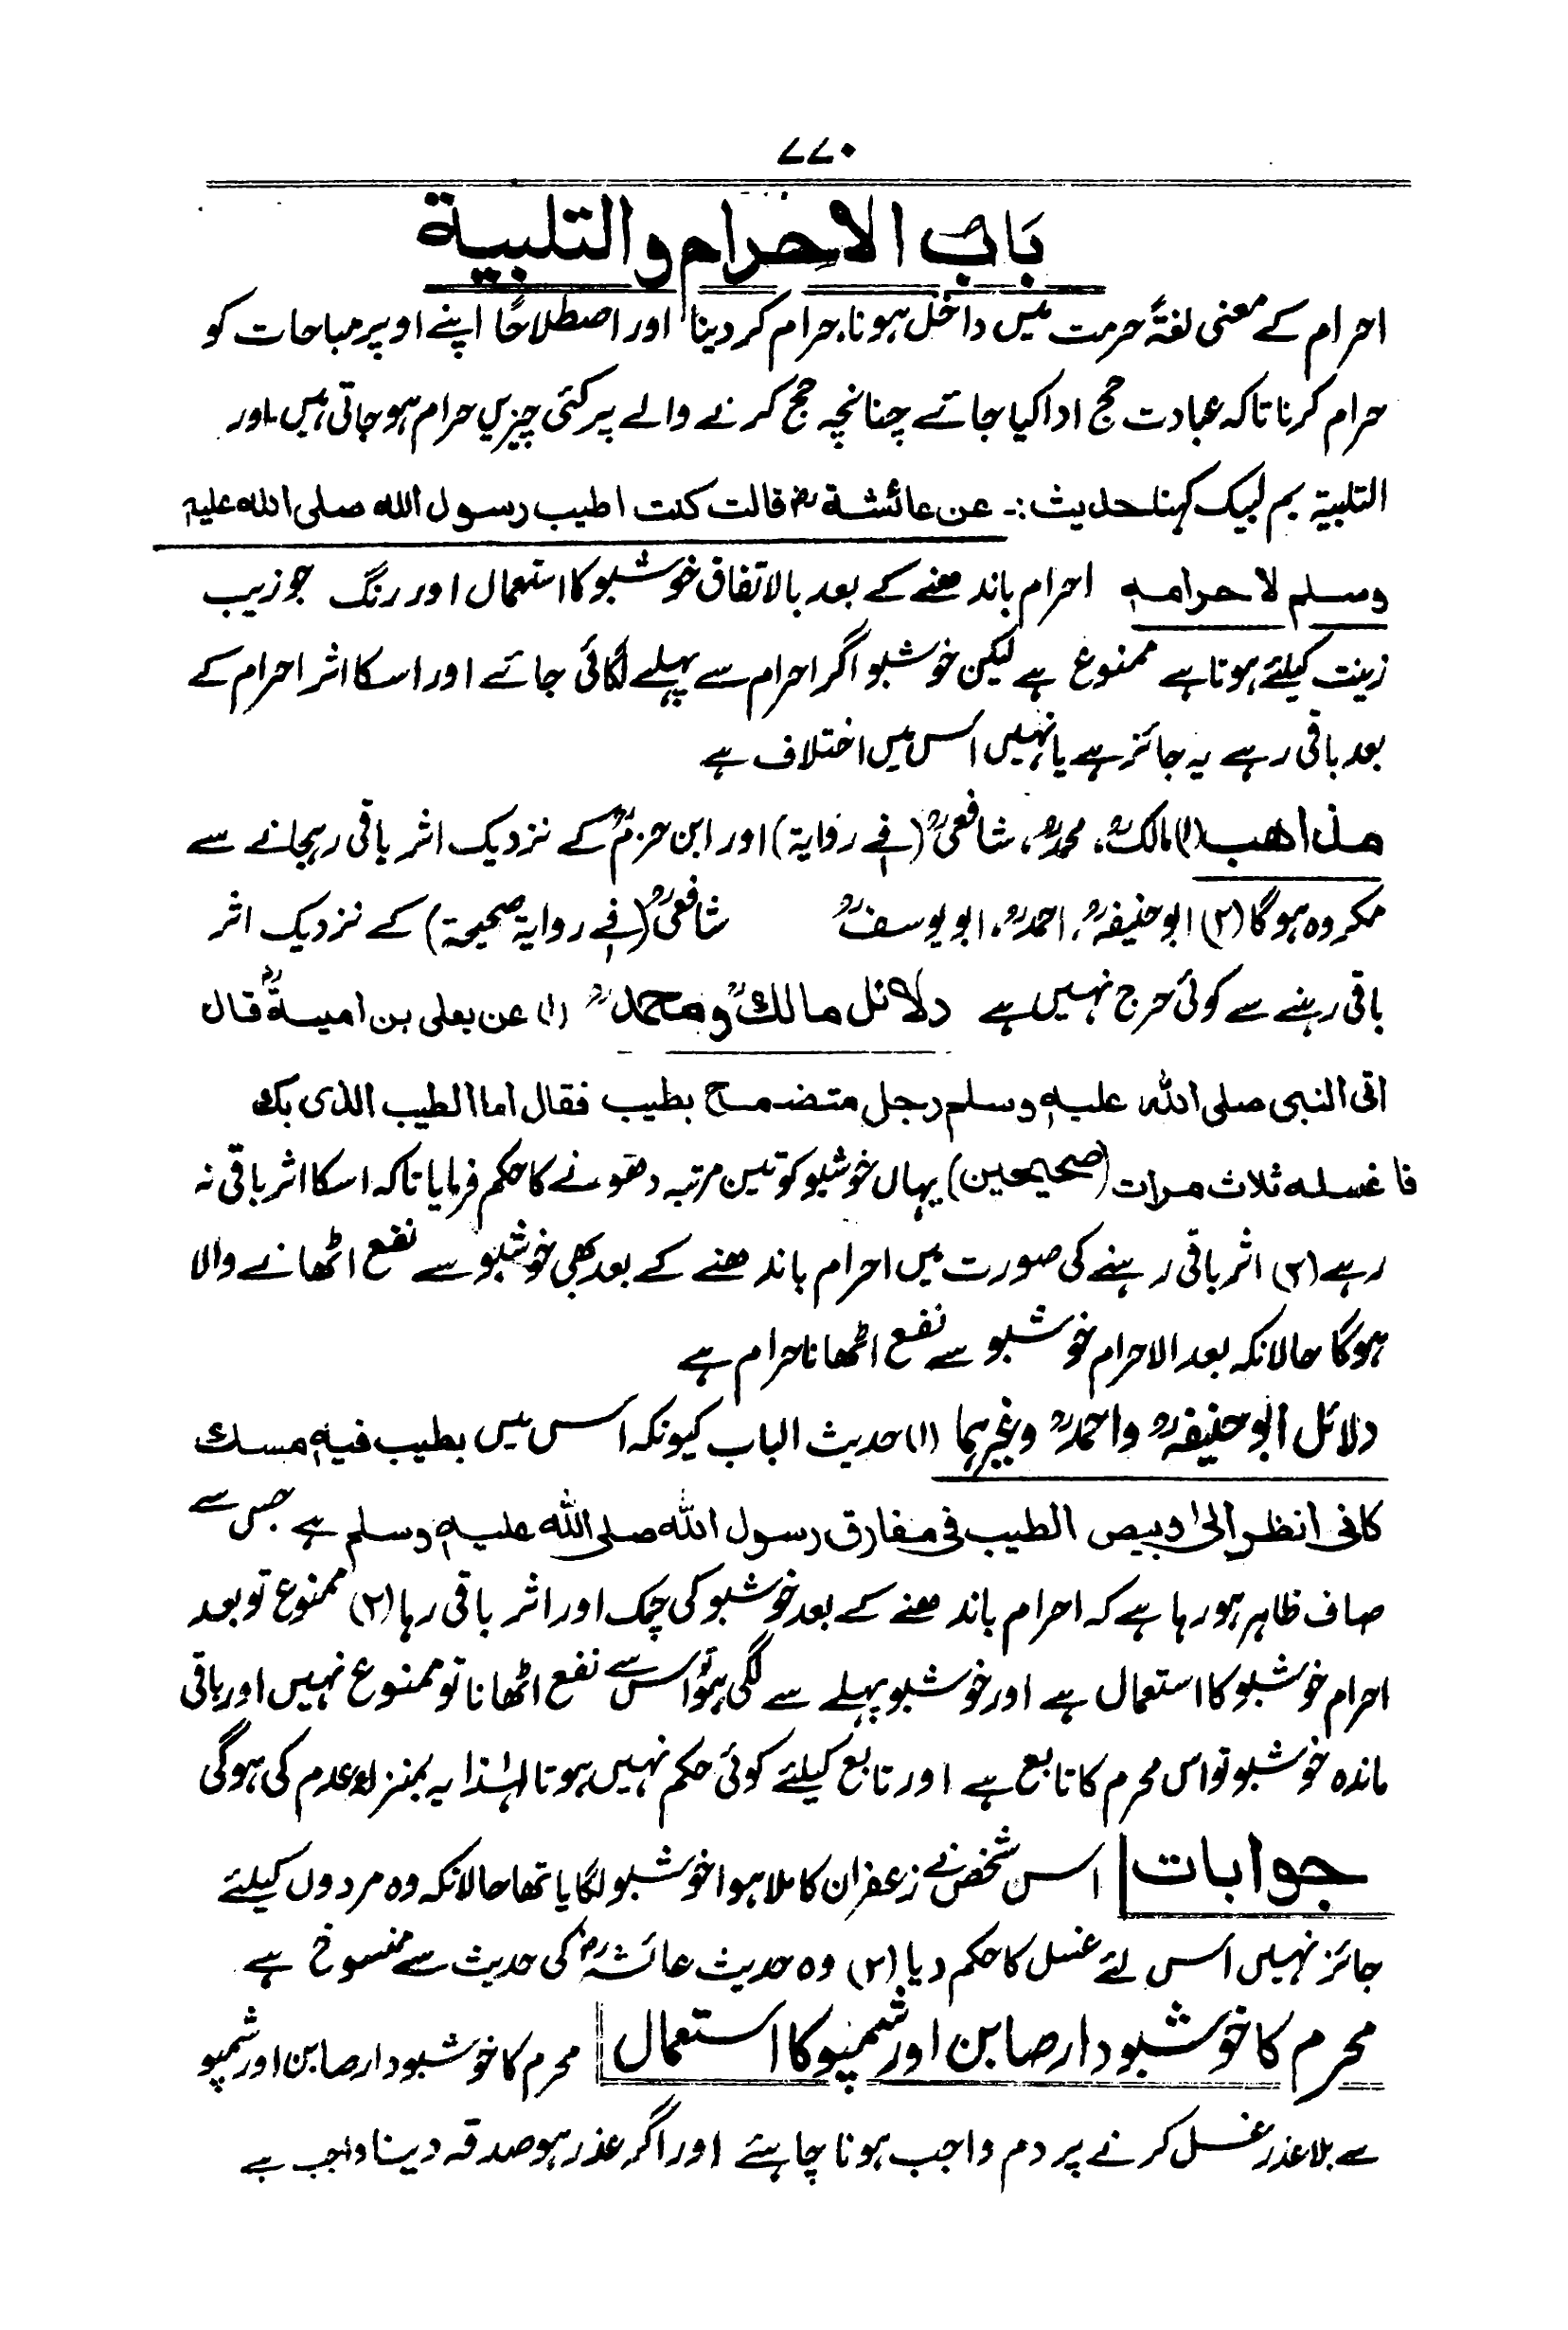 ۷۷۰
باب الاحرام والتلبية
احرام کے معنی لغۃً حرمت میں داخل ہونا، حرام کردینا اور اصطلاحًا اپنے اوپر مباحات کو
حرام کرنا تاکہ عبادت حج ادا کیا جائے چنانچہ حج کرنے والے پر کئی چیزیں حرام ہوجاتی ہیں اور
التلبیۃ بم لبیک کہنا حدیث :۔ عن عائشة رض قالت كنت اطيب رسول الله صلى الله عليه
وسلم لاحرامه احرام باندھنے کے بعد بالاتفاق خوشبو کا استعمال اور رنگ جو زیب
زینت کیلئے ہوتا ہے ممنوع ہے لیکن خوشبو اگر احرام سے پہلے لگائی جائے اور اسکا اثر احرام کے
بعد باقی رہے یہ جائز ہے یا نہیں اس میں اختلاف ہے
مذاهب (۱) مالکؒ، محمدؒ، شافعیؒ (فے روایۃ) اور ابن حزمؒ کے نزدیک اثر باقی رہجانے سے
مکروہ ہوگا (۲) ابوحنیفہؒ، احمدؒ، ابویوسفؒ شافعیؒ (فے روایۃ صحیحۃ) کے نزدیک اثر
باقی رہنے سے کوئی حرج نہیں ہے دلائل مالكؒ ومحمدؒ (۱) عن يعلى بن امية رض قال
اتى النبى صلى الله عليه وسلم رجل متضمخ بطيب فقال اما الطيب الذى بك
فاغسله ثلاث مرات (صحيحين) یہاں خوشبو کو تین مرتبہ دھونے کا حکم فرمایا تاکہ اسکا اثر باقی نہ
رہے (۲) اثر باقی رہنے کی صورت میں احرام باندھنے کے بعد بھی خوشبو سے نفع اٹھانے والا
ہوگا حالانکہ بعد الاحرام خوشبو سے نفع اٹھانا حرام ہے
دلائل ابوحنیفہؒ واحمدؒ وغیرہما (۱) حدیث الباب کیونکہ اس میں بطيب فيه مسك
كانى انظر الى وبيص الطيب فى مفارق رسول الله صلى الله عليه وسلم ہے جس سے
صاف ظاہر ہورہا ہے کہ احرام باندھنے کے بعد خوشبو کی چمک اور اثر باقی رہا (۲) ممنوع تو بعد
احرام خوشبو کا استعمال ہے اور خوشبو پہلے سے لگی ہو تو اس سے نفع اٹھانا تو ممنوع نہیں اور باقی
ماندہ خوشبو تو اس محرم کا تابع ہے اور تابع کیلئے کوئی حکم نہیں ہوتا لہٰذا یہ بمنزلہ عدم کی ہوگی
جوابات اس شخص نے زعفران کا ملا ہوا خوشبو لگایا تھا حالانکہ وہ مردوں کیلئے
جائز نہیں اس لئے غسل کا حکم دیا (۲) وہ حدیث عائشہ رض کی حدیث سے منسوخ ہے
محرم کا خوشبودار صابن اور شمپو کا استعمال محرم کا خوشبودار صابن اور شمپو
سے بلاعذر غسل کرنے پر دم واجب ہونا چاہئے اور اگر عذر ہو صدقہ دینا واجب ہے